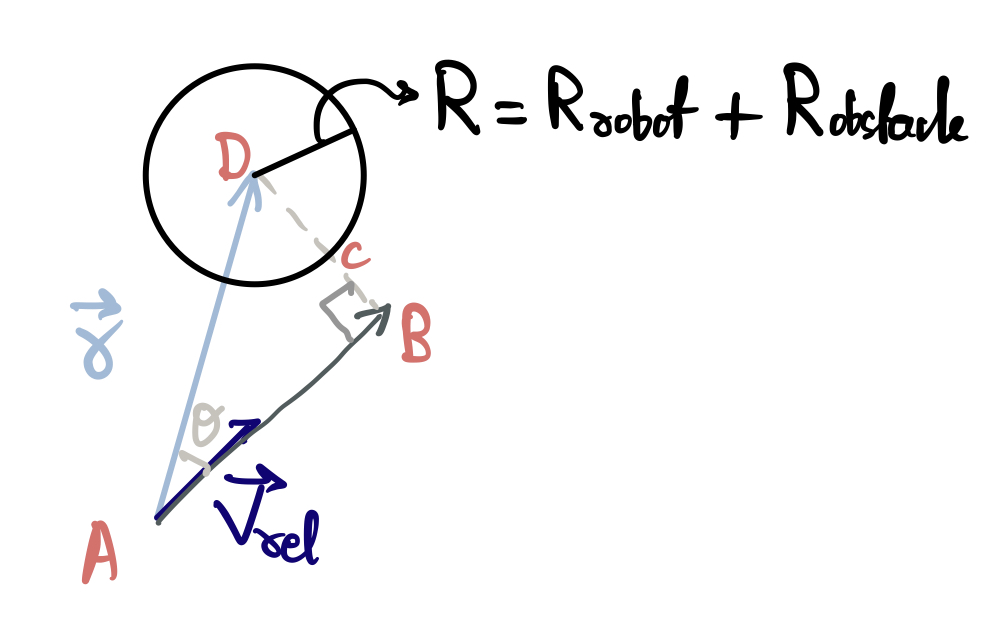 R = Rrobot + Robstacle
D
C
r
B
θ
Vrel
A